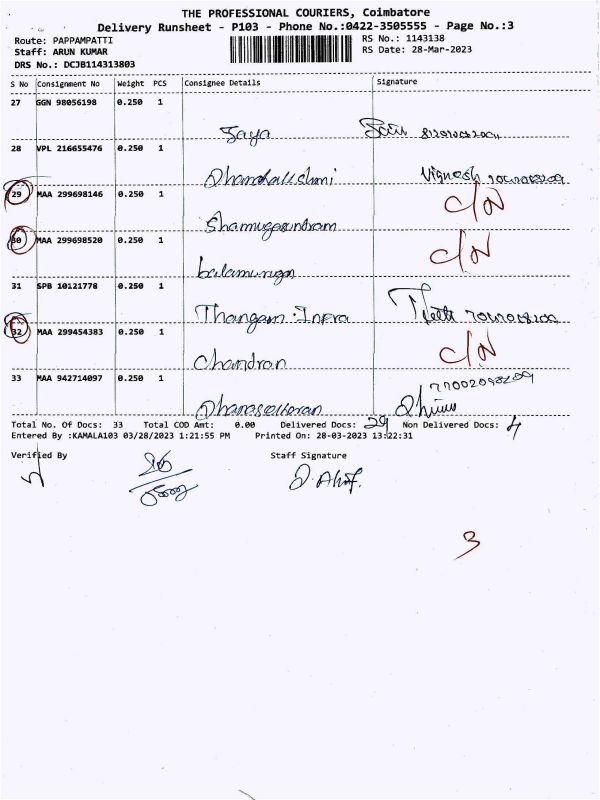 THE PROFESSIONAL COURIERS, Coimbatore
Delivery Runsheet - P103 - Phone No.:0422-3505555 - Page No.:3
Route: PAPPAMPATTI
RS No.: 1143138
Staff: ARUN KUMAR
RS Date: 28-Mar-2023
DRS No.: DCJB114313803
S No Consignment No Weight PCS Consignee Details Signature
27 GGN 98056198 0.250 1
Jaya
28 VPL 216655476 0.250 1
Dhanalakshmi Vignesh
29 MAA 299698146 0.250 1 C/N
Shamugasundram
30 MAA 299698520 0.250 1 C/N
balamurugan
31 SPB 10121778 0.250 1
Thangam Infra
32 MAA 299454383 0.250 1 C/N
Chandran
33 MAA 942714097 0.250 1
Dhanasekaran
Total No. Of Docs: 33 Total COD Amt: 0.00 Delivered Docs: 29 Non Delivered Docs: 4
Entered By :KAMALA103 03/28/2023 1:21:55 PM Printed On: 28-03-2023 13:22:31
Verified By Staff Signature
3